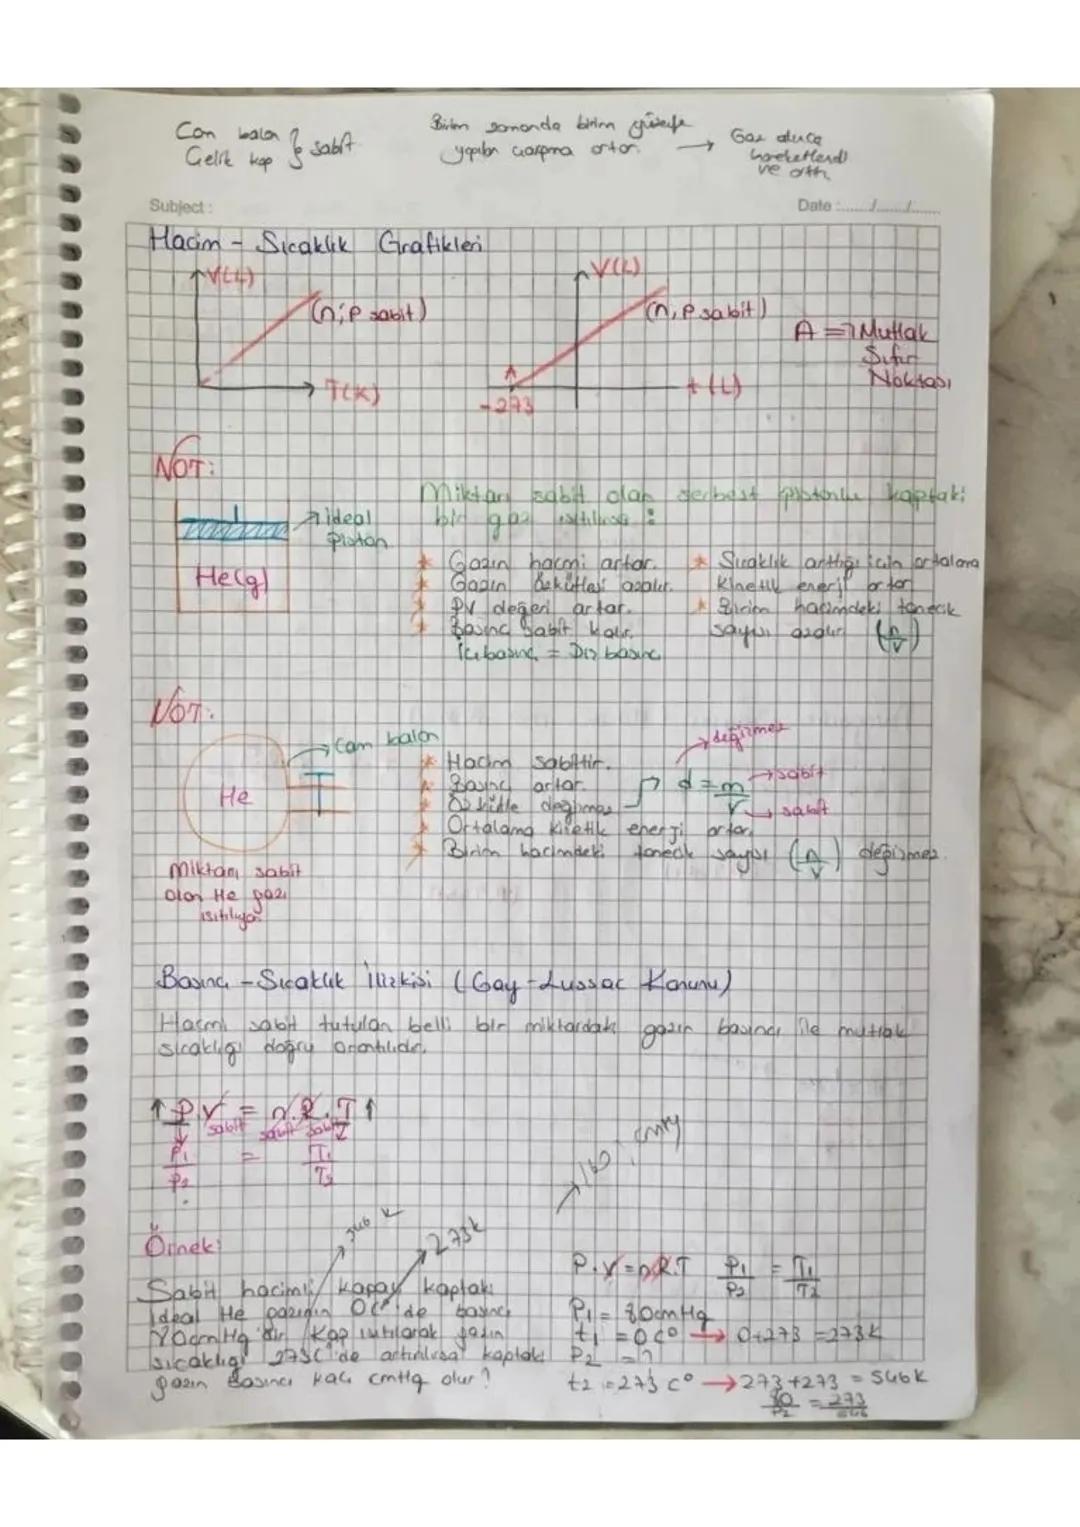 Cam balon
Çelik kap } sabit
Birim zamanda birim yüzeye
yapılan çarpma artar. →
Gaz alınca
hareketlendi
ve arttı
Subject:
Date :....../....../......
Hacim - Sıcaklık Grafikleri
V(L)
(n,P sabit)
T(K)
V(L)
(n,P sabit)
A
-273
t (L)
A => Mutlak
Sıfır
Noktası
NOT:
Miktarı sabit olan serbest pistonlu kaptaki
bir gaz ısıtılırsa :
ideal
piston
He(g)
* Gazın hacmi artar.
* Gazın özkütlesi azalır.
* PV değeri artar.
* Basınç sabit kalır.
İç basınç = Dış basınç
* Sıcaklık arttığı için ortalama
kinetik enerji artar
* Birim hacimdeki tanecik
sayısı azalır (n/V)
NOT:
Cam balon
He
Miktarı sabit
olan He gazı
ısıtılıyor
* Hacim sabittir.
* Basınç artar.
* Özkütle değişmez
* Ortalama kinetik enerji artar.
* Birim hacimdeki tanecik sayısı (n/V) değişmez.
değişmez
d = m/V
sabit
sabit
Basınç - Sıcaklık İlişkisi (Gay-Lussac Kanunu)
Hacmi sabit tutulan belli bir miktardaki gazın basıncı ile mutlak
sıcaklığı doğru orantılıdır.
↑ P.V = n.R.T ↑
sabit sabit sabit
P1/P2 = T1/T2
160 cmHg
Örnek:
546 K
273K
Sabit hacimli kapalı kaptaki
ideal He gazının 0 C° de basıncı
70cmHg dır. Kap ısıtılarak gazın
sıcaklığı 273C° de artırılırsa kaptaki
gazın basıncı kaç cmHg olur?
P.V=nRT P1/P2 = T1/T2
P1 = 80cmHg
t1 = 0 C° → 0+273 = 273K
P2 = ?
t2 = 273 C° → 273+273 = 546K
80/P2 = 273/546